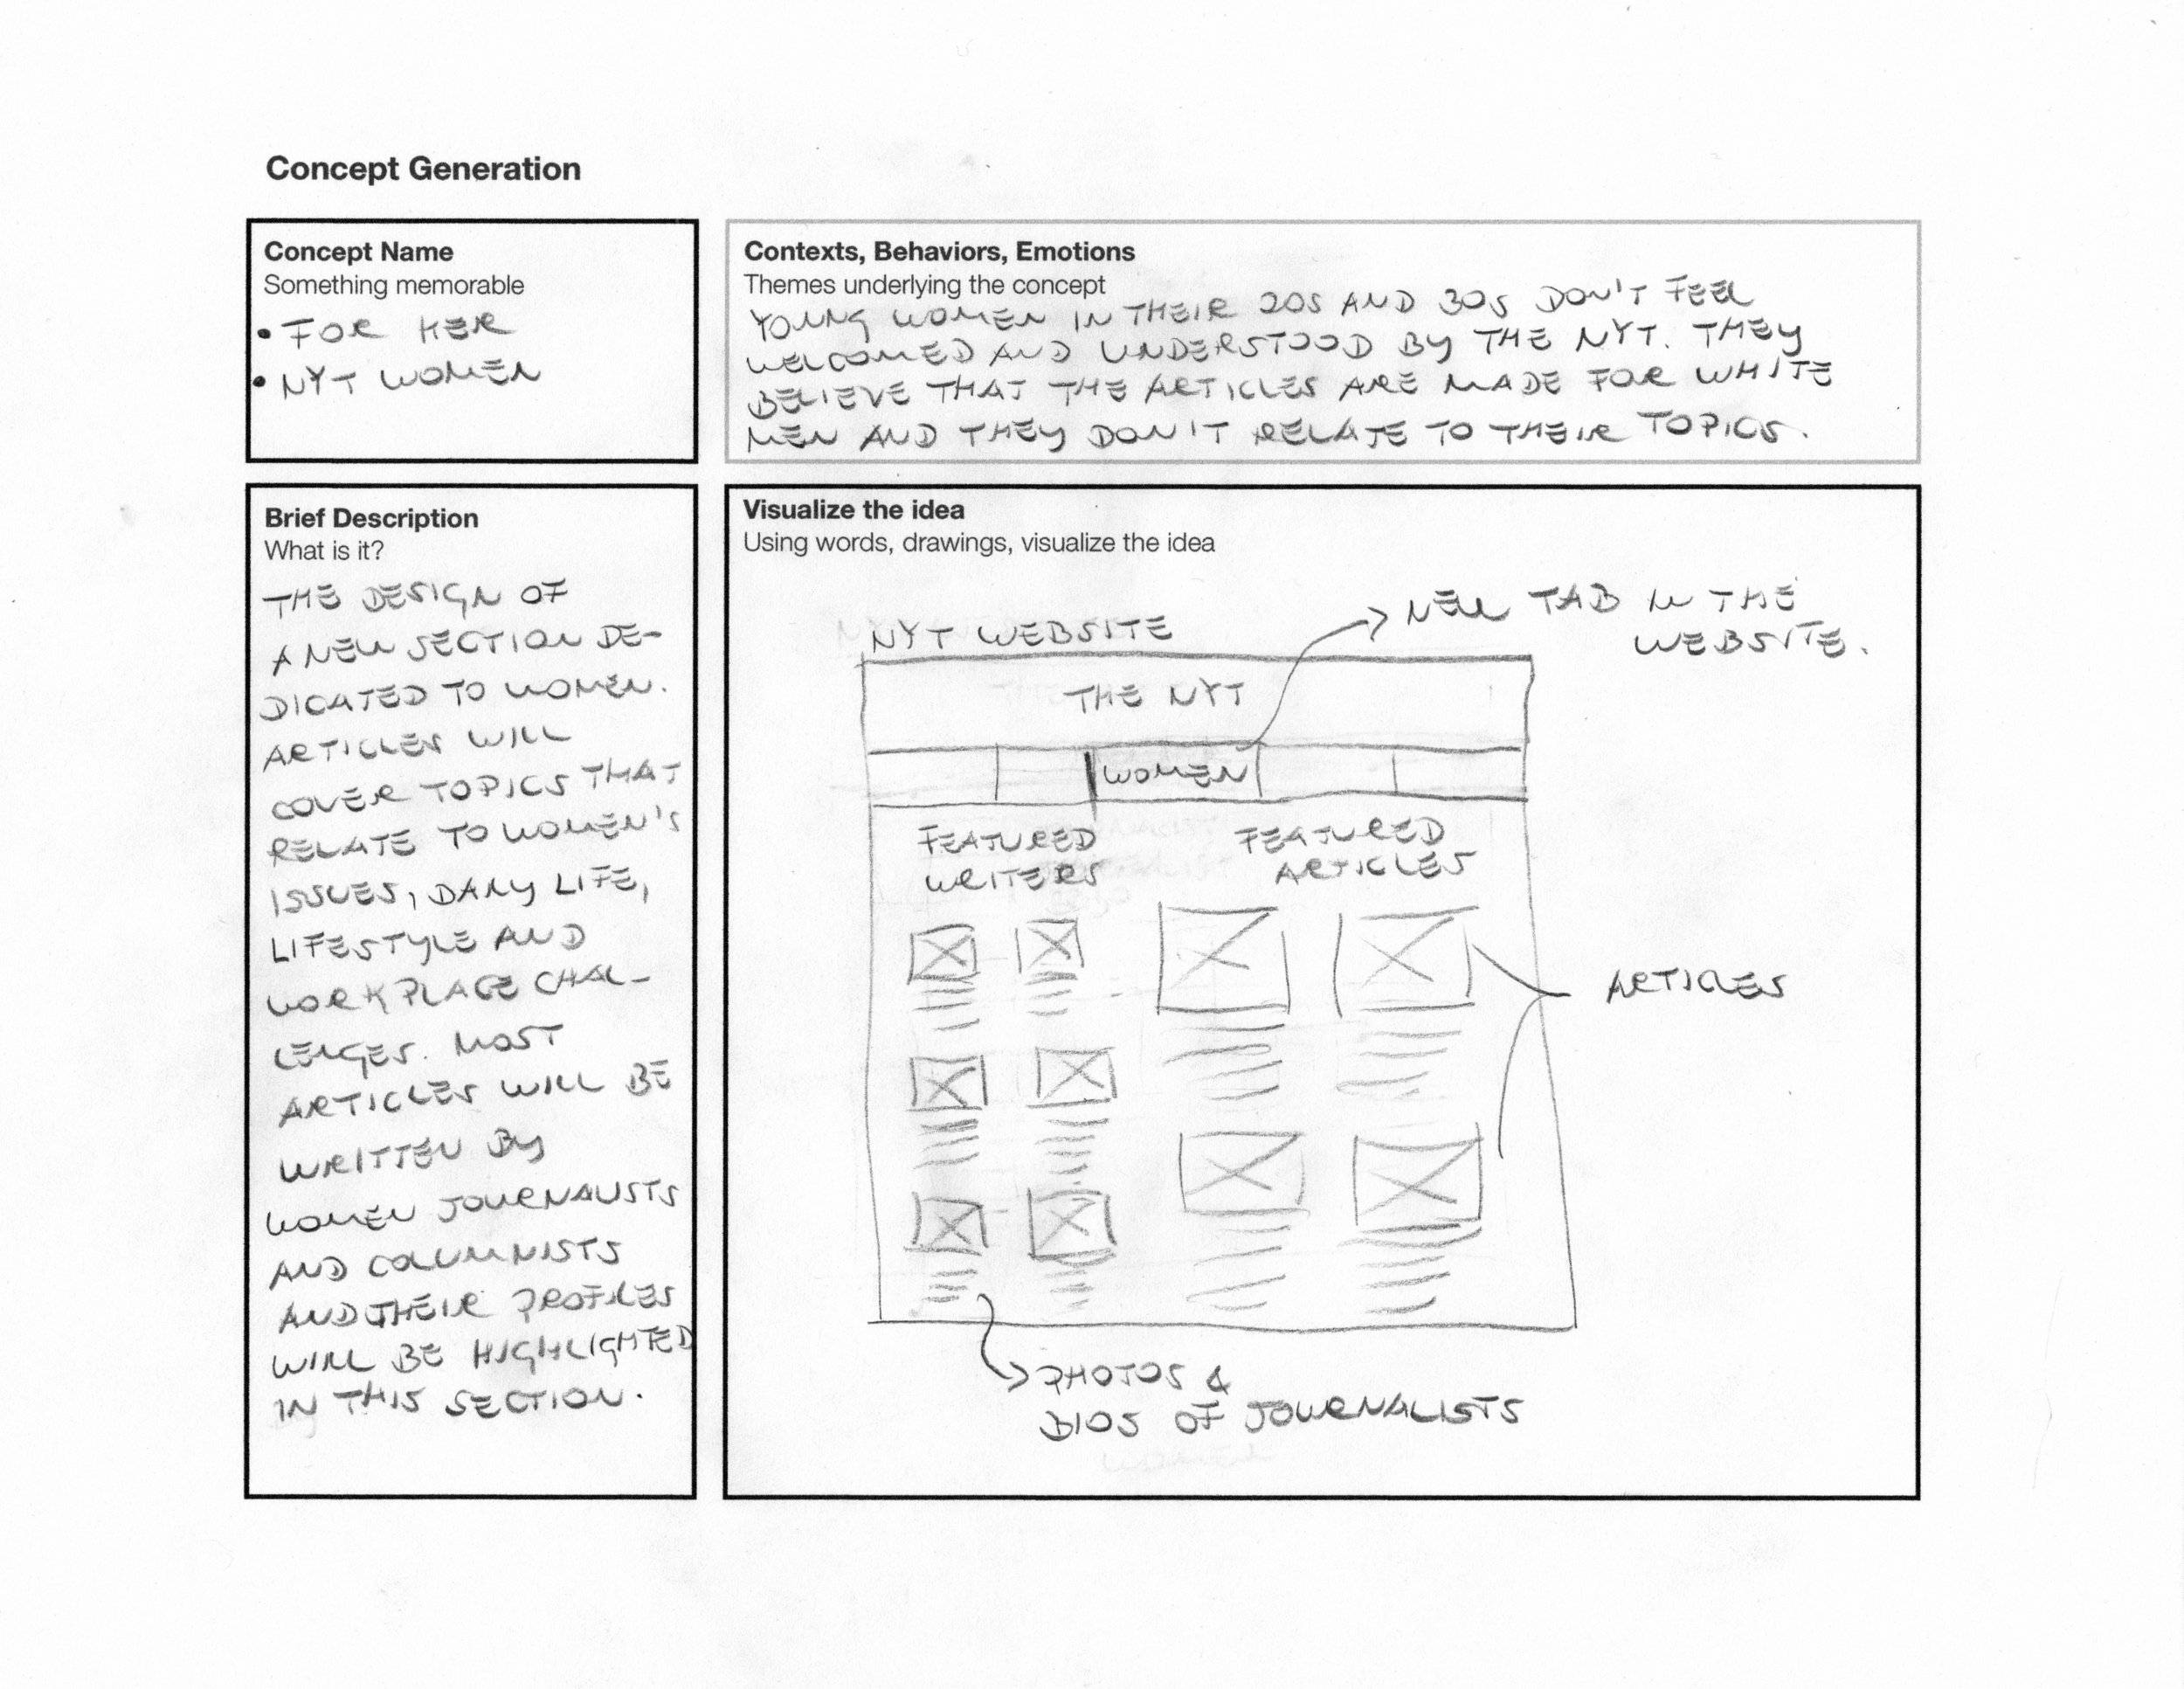 Concept Generation
Concept Name
Something memorable
• FOR HER
• NYT WOMEN
Contexts, Behaviors, Emotions
Themes underlying the concept
YOUNG WOMEN IN THEIR 20S AND 30S DON'T FEEL
WELCOMED AND UNDERSTOOD BY THE NYT. THEY
BELIEVE THAT THE ARTICLES ARE MADE FOR WHITE
MEN AND THEY DON'T RELATE TO THEIR TOPICS.
Brief Description
What is it?
THE DESIGN OF
A NEW SECTION DE-
DICATED TO WOMEN.
ARTICLES WILL
COVER TOPICS THAT
RELATE TO WOMEN'S
ISSUES, DAILY LIFE,
LIFESTYLE AND
WORKPLACE CHAL-
LENGES. MOST
ARTICLES WILL BE
WRITTEN BY
WOMEN JOURNALISTS
AND COLUMNISTS
AND THEIR PROFILES
WILL BE HIGHLIGHTED
IN THIS SECTION.
Visualize the idea
Using words, drawings, visualize the idea
NEW TAB IN THE
WEBSITE.
NYT WEBSITE
THE NYT
WOMEN
FEATURED
WRITERS
FEATURED
ARTICLES
ARTICLES
PHOTOS &
BIOS OF JOURNALISTS